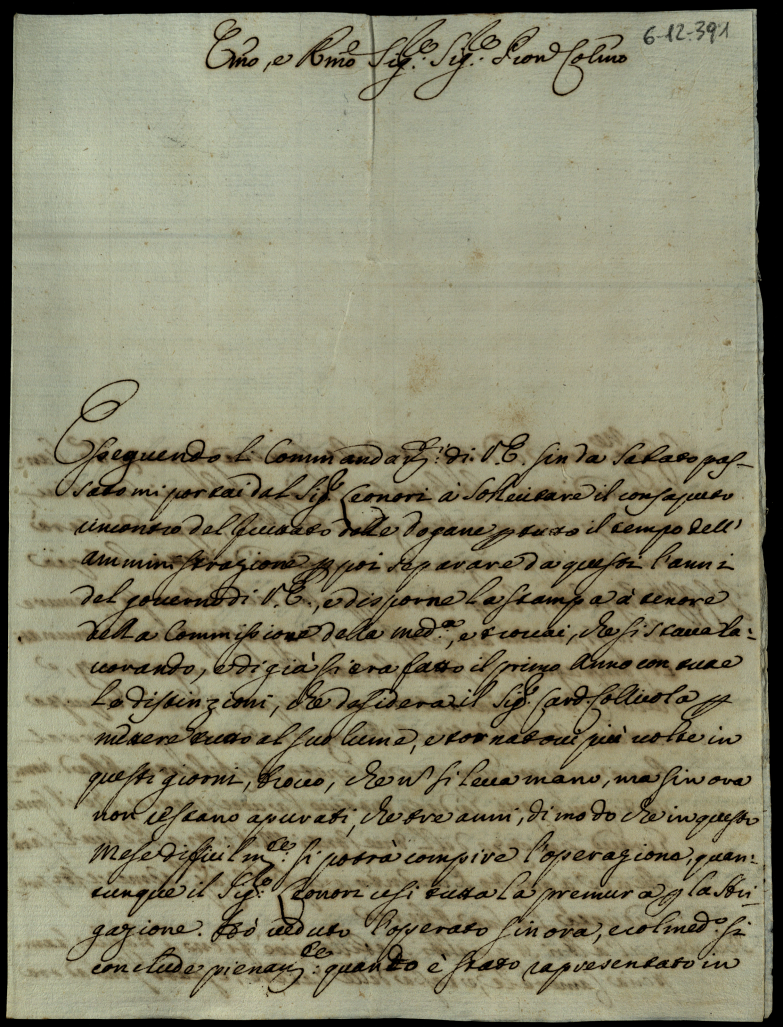 6-12-391
Emo, e Rmo Sig.re Sig.re Pron Colmo
Esseguendo li Commandam.ti di V.E. sin da Sabato pas-
sato mi portai dal Sig.r Leonori à sollecitare il consaputo
incontro del fruttato delle dogane p tutto il tempo dell'
amministrazione p poi separare da questi l'anni
del governo di V.E., e disporne la stampa à tenore
della Commissione della med.a, e trovai, che si stave la-
vorando, e di già si era fatto il primo Anno con tutte
le distinzioni, che desidera il Sig.r Card Collivola p
mettere tutto al suo lume, e tornatovi più volte in
questi giorni, trovo, che n si leva mano, ma sin ora
non restano apurati, che tre anni, di modo che in questo
Mese difficilm.te si potrà compire l'operazione, quan-
tunque il Sig.r Leonori usi tutta la premura p la stri-
gazione. Hò veduto l'operato sin ora, e col med.o si
conclude pienam.te quando è stato rapresentato in